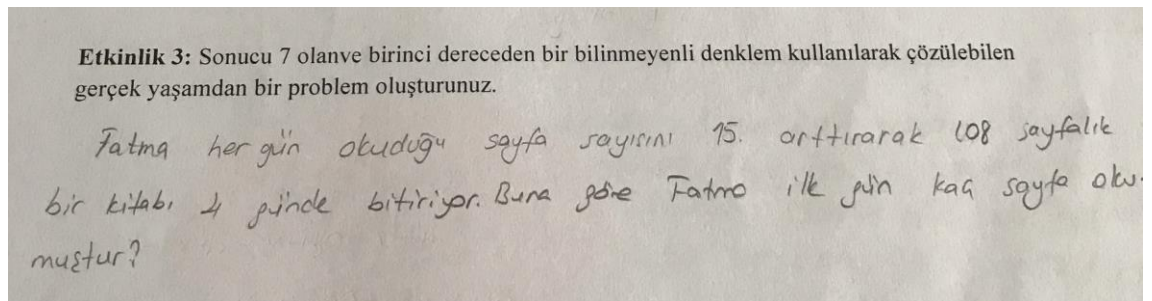 Etkinlik 3: Sonucu 7 olanve birinci dereceden bir bilinmeyenli denklem kullanılarak çözülebilen
gerçek yaşamdan bir problem oluşturunuz.
Fatma her gün okuduğu sayfa sayısını 15. arttırarak 108 sayfalık
bir kitabı 4 günde bitiriyor. Buna göre Fatma ilk gün kaç sayfa oku-
muştur?